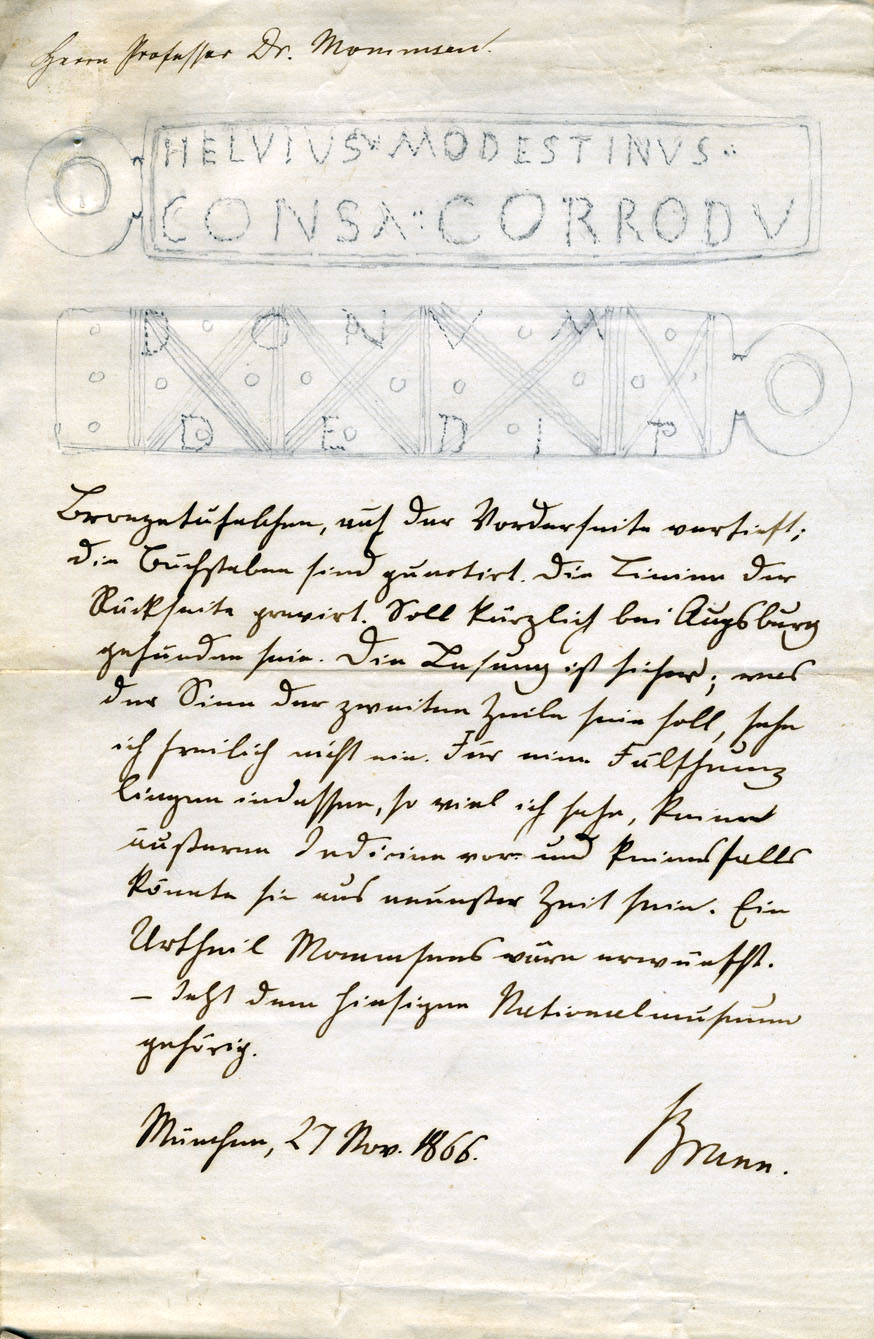 Herrn Professor Dr. Mommsen.
HELVIUS MODESTINVS
CONSA CORRODV
DONVM
DEDIT
Bronzetäfelchen, auf der Vorderseite vertieft;
die Buchstaben sind punctirt. Die Linien der
Rückseite gravirt. Soll kürzlich bei Augsburg
gefunden sein. Die Lesung ist sicher; was
der Sinn der zweiten Zeile sein soll, sehe
ich freilich nicht ein. Für eine Fälschung
liegen indessen, so viel ich sehe, keine
äußeren Indicien vor und keinesfalls
könnte sie aus neuester Zeit sein. Ein
Urtheil Mommsens wäre erwünscht.
– Jetzt dem hiesigen Nationalmuseum
gehörig.
München, 27 Nov. 1866.
Brunn.